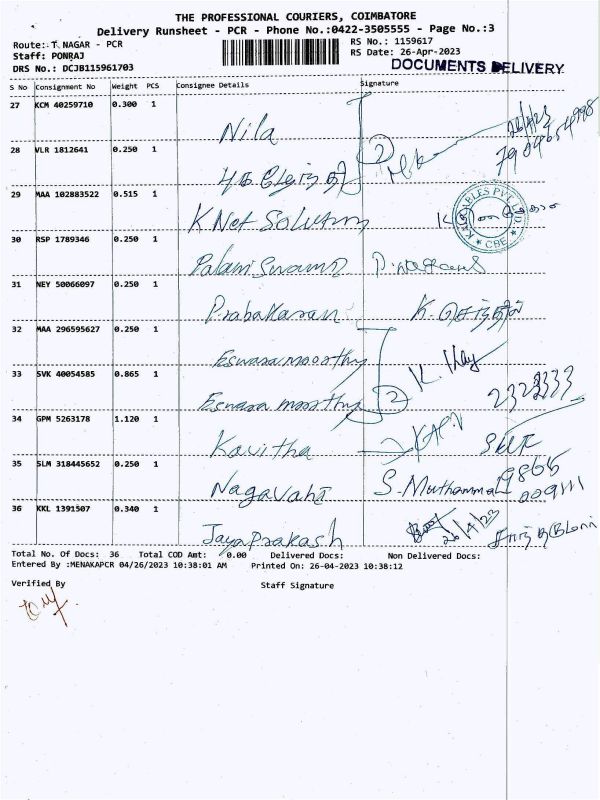 THE PROFESSIONAL COURIERS, COIMBATORE
Delivery Runsheet - PCR - Phone No.:0422-3505555 - Page No.:3
Route: T NAGAR - PCR
RS No.: 1159617
Staff: PONRAJ
RS Date: 26-Apr-2023
DRS No.: DCJB115961703
DOCUMENTS DELIVERY
S No Consignment No Weight PCS Consignee Details Signature
27 KCM 40259710 0.300 1
Nila
26/4/23
28 VLR 1812641 0.250 1
2
29 MAA 102883522 0.515 1
K Net Solution
30 RSP 1789346 0.250 1
Palani Swamy
31 NEY 50066097 0.250 1
Prabakaran K. செந்தில்
32 MAA 296595627 0.250 1
Eswaramoorthy
33 SVK 40054585 0.865 1
Eswara moorthy 2
34 GPM 5263178 1.120 1
Kavitha
35 SLM 318445652 0.250 1
Nagavalli S. Muthammal 9865
009111
36 KKL 1391507 0.340 1
Jaya Prakash 26/4/23
Total No. Of Docs: 36 Total COD Amt: 0.00 Delivered Docs: Non Delivered Docs:
Entered By :MENAKAPCR 04/26/2023 10:38:01 AM Printed On: 26-04-2023 10:38:12
Verified By Staff Signature